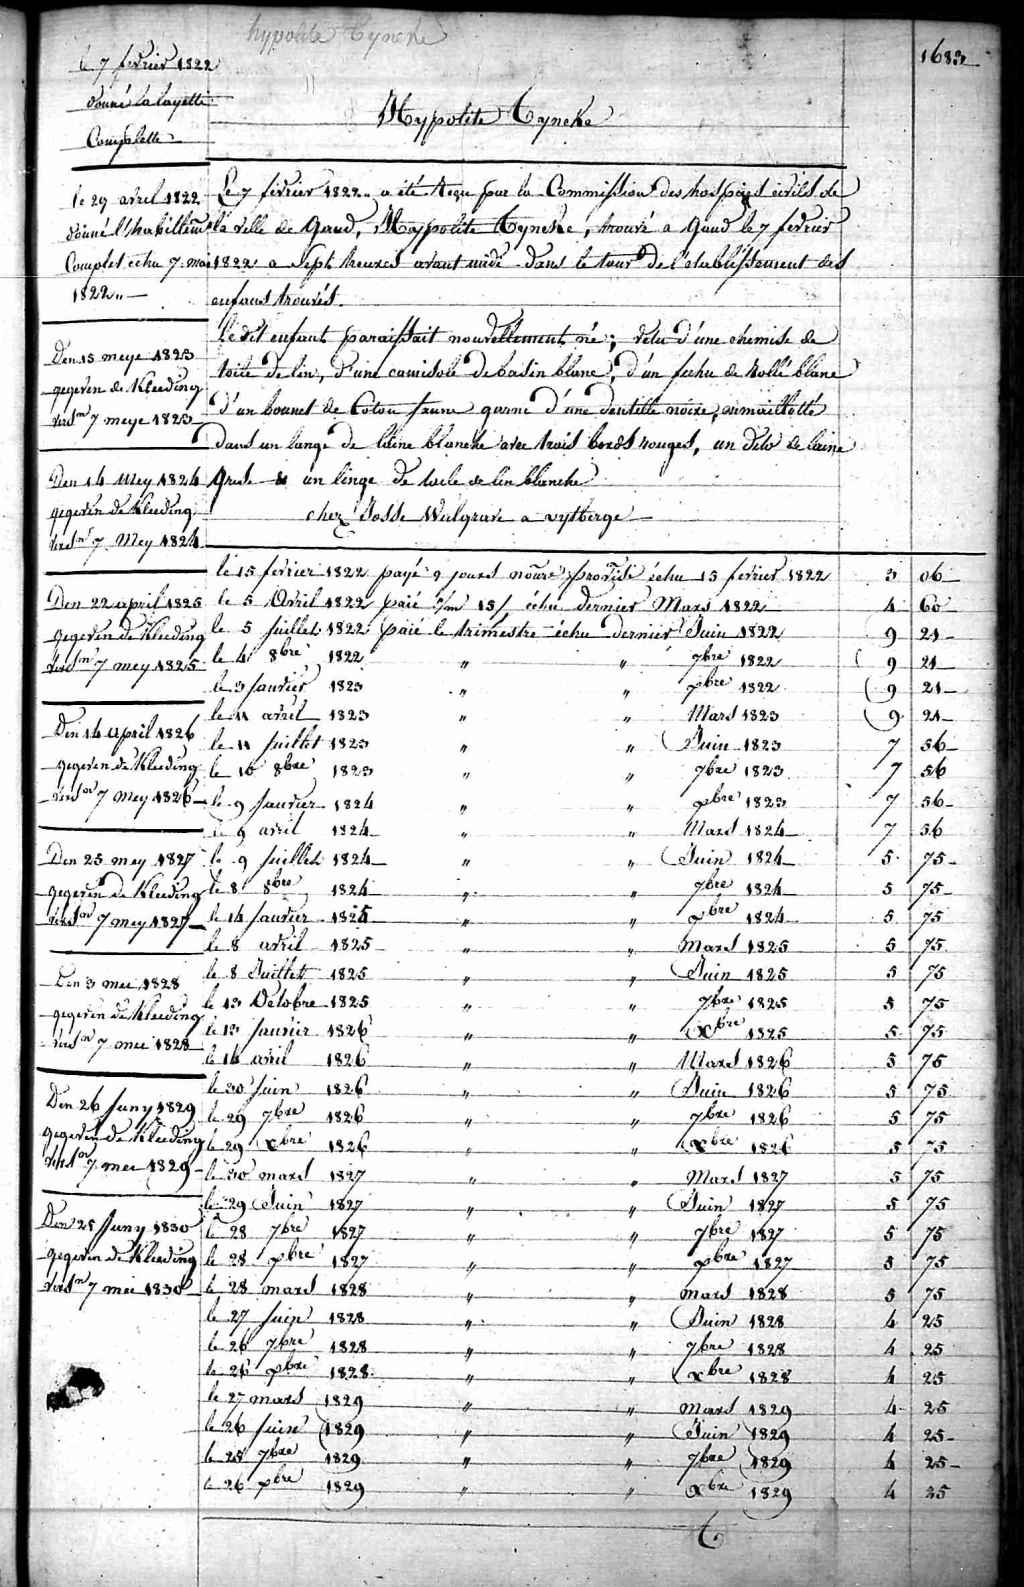 hypolite Cyneke
1683
le 7 février 1822
donné la layette
Complette
Hypolite Cyneke
le 29 avril 1822
donné l'habillem
Complet échu 7 mai
1822 „
Le 7 février 1822 „ a été reçu par la Commission des hospices civils de
la ville de Gand, Hyppolite Cyneke, trouvé a Gand le 7 fevrier
1822 a Sept heures avant midi dans le tour de l'etablissement des
enfans trouvés.
Le dit enfant paraissait nouvellement né; vetu d'une chemise de
toile de lin, d'une camisole de basin blanc, d'un fichu de blanc
d'un bonnet de Coton jaune garni d'une dentelle noire, emmaillotté
dans un lange de laine blanche avec trois bords rouges, un de laine
un linge de toile de lin blanche
chez Josse Walgrave a uytberge
Den 15 meye 1823
gegeven de Kleeding
verst 7 meye 1823
Den 14 Mey 1824
gegeven de Kleeding
verstn 7 Mey 1824
Den 22 april 1825
gegeven de Kleeding
verstn 7 mey 1825
Den 14 april 1826
gegeven de Kleeding
verstn 7 Mey 1826
Den 25 mey 1827
gegeven de Kleeding
verstn 7 mey 1827
Den 3 mei 1828
gegeven de Kleeding
verstn 7 mei 1828
Den 26 Juny 1829
gegeven de Kleeding
verstn 7 mei 1829
Den 25 Juny 1830
gegeven de Kleeding
verstn 7 mei 1830
le 15 fevrier 1822 payé 9 jours échu 15 fevrier 1822 3 06
le 5 Avril 1822 paié 15/ échu dernier Mars 1822 4 60
le 5 juillet 1822 paié le trimestre échu dernier Juin 1822 9 21
le 4 8bre 1822 „ „ 7bre 1822 9 21
le 3 Janvier 1823 „ „ xbre 1822 9 21
le 11 avril 1823 „ „ Mars 1823 9 21
le 11 Juillet 1823 „ „ Juin 1823 7 56
le 10 8bre 1823 „ „ 7bre 1823 7 56
le 9 Janvier 1824 „ „ xbre 1823 7 56
le 9 avril 1824 „ „ Mars 1824 7 56
le 9 Juillet 1824 „ „ Juin 1824 5 75
le 8 8bre 1824 „ „ 7bre 1824 5 75
le 14 Janvier 1825 „ „ xbre 1824 5 75
le 8 avril 1825 „ „ Mars 1825 5 75
le 8 Juillet 1825 „ „ Juin 1825 5 75
le 13 Octobre 1825 „ „ 7bre 1825 5 75
le 13 Janvier 1826 „ „ Xbre 1825 5 75
le 14 avril 1826 „ „ Mars 1826 5 75
le 30 Juin 1826 „ „ Juin 1826 5 75
le 29 7bre 1826 „ „ 7bre 1826 5 75
le 29 xbre 1826 „ „ xbre 1826 5 75
le 30 mars 1827 „ „ Mars 1827 5 75
le 29 Juin 1827 „ „ Juin 1827 5 75
le 28 7bre 1827 „ „ 7bre 1827 5 75
le 28 xbre 1827 „ „ xbre 1827 5 75
le 28 mars 1828 „ „ mars 1828 5 75
le 27 Juin 1828 „ „ Juin 1828 4 25
le 26 7bre 1828 „ „ 7bre 1828 4 25
le 26 xbre 1828 „ „ xbre 1828 4 25
le 27 mars 1829 „ „ mars 1829 4 25
le 26 Juin 1829 „ „ Juin 1829 4 25
le 25 7bre 1829 „ „ 7bre 1829 4 25
le 26 xbre 1829 „ „ xbre 1829 4 25